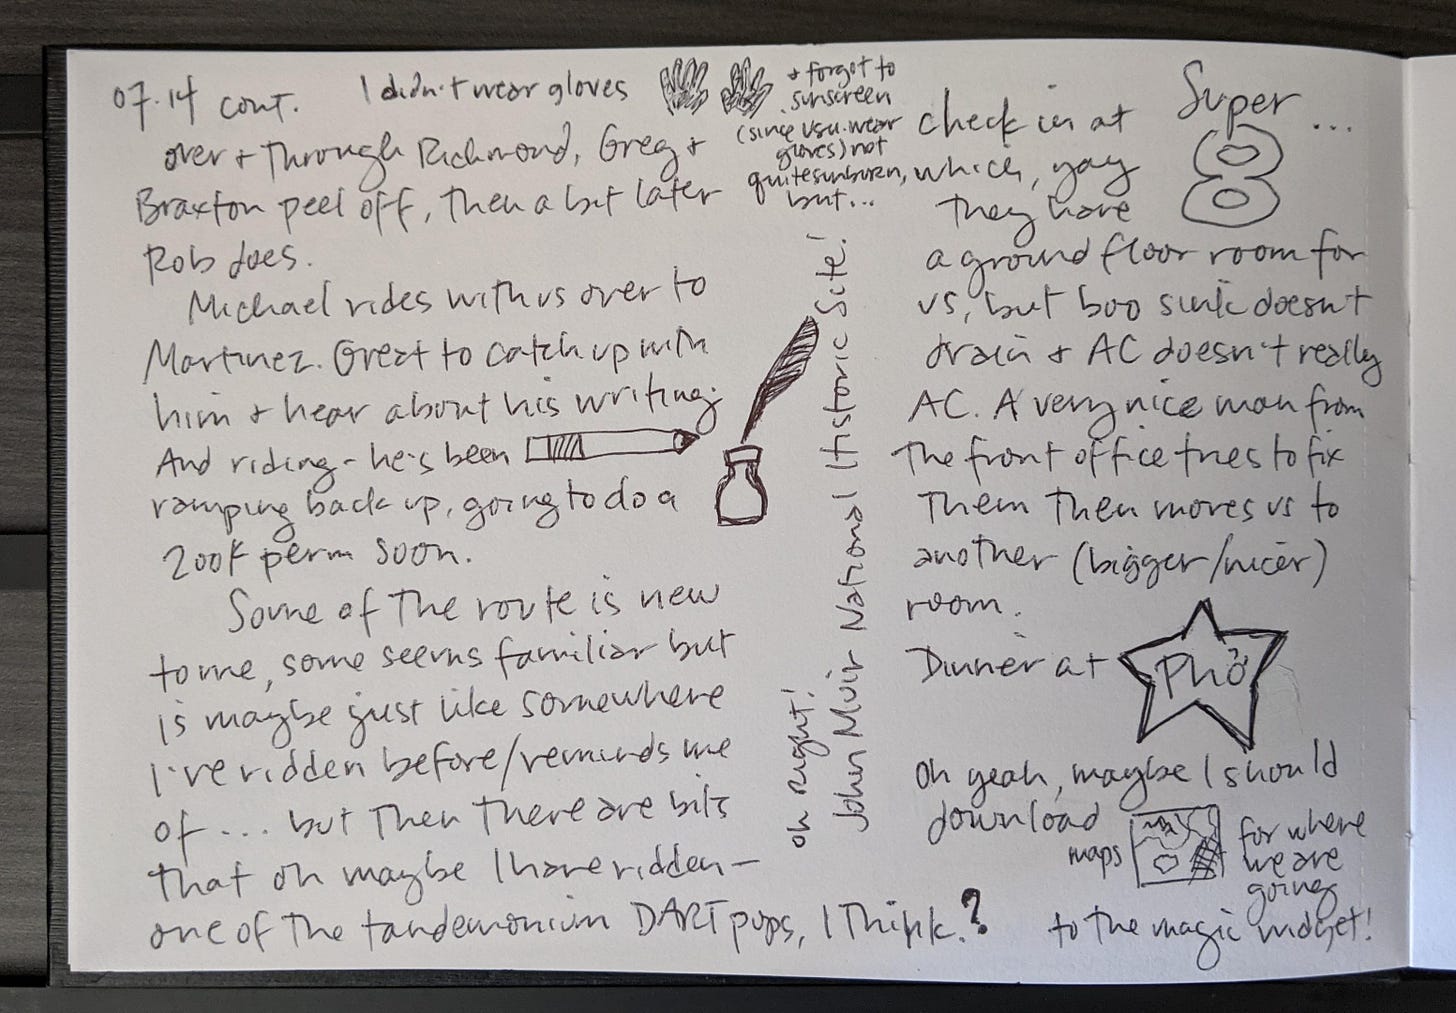 07.14 cont.
I didn't wear gloves
+ forgot to
sunscreen
(since usu. wear
gloves) not
quite sunburn,
but...
over + through Richmond, Greg +
Braxton peel off, then a bit later
Rob does.
Michael rides with us over to
Martinez. Great to catch up with
him + hear about his writing.
And riding - he's been
ramping back up, going to do a
200K perm soon.
Some of the route is new
to me, some seems familiar but
is maybe just like somewhere
I've ridden before/reminds me
of ... but then there are bits
that oh maybe I have ridden -
one of the tandemonium DART pops, I think.?
oh right!
John Muir National Historic Site!
check in at
Super
8
...
which, yay
they have
a ground floor room for
us, but boo sink doesn't
drain + AC doesn't really
AC. A very nice man from
the front office tries to fix
them then moves us to
another (bigger/nicer)
room.
Dinner at
Phở
Oh yeah, maybe I should
download
maps
for where
we are
going
to the magic widget!